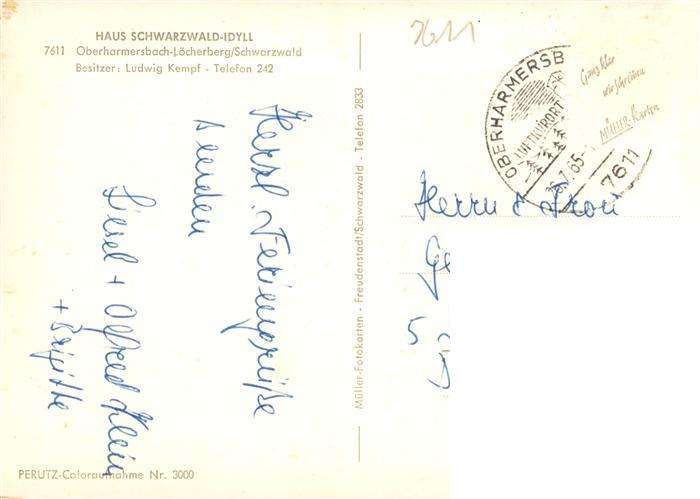 HAUS SCHWARZWALD-IDYLL
7611 Oberharmersbach-Löcherberg/Schwarzwald
Besitzer: Ludwig Kempf - Telefon 242
Herzl. Feriengrüße
senden
Liesel + Alfred Klein
+ Brigitte
PERUTZ-Coloraufnahme Nr. 3000
Müller-Fotokarten - Freudenstadt/Schwarzwald - Telefon 2833
7611
OBERHARMERSB
LUFTKURORT
7.65-
7611
Ganz klar
wir schreiben
MÜLLER-Karten
Herrn & Frau
Ge
5